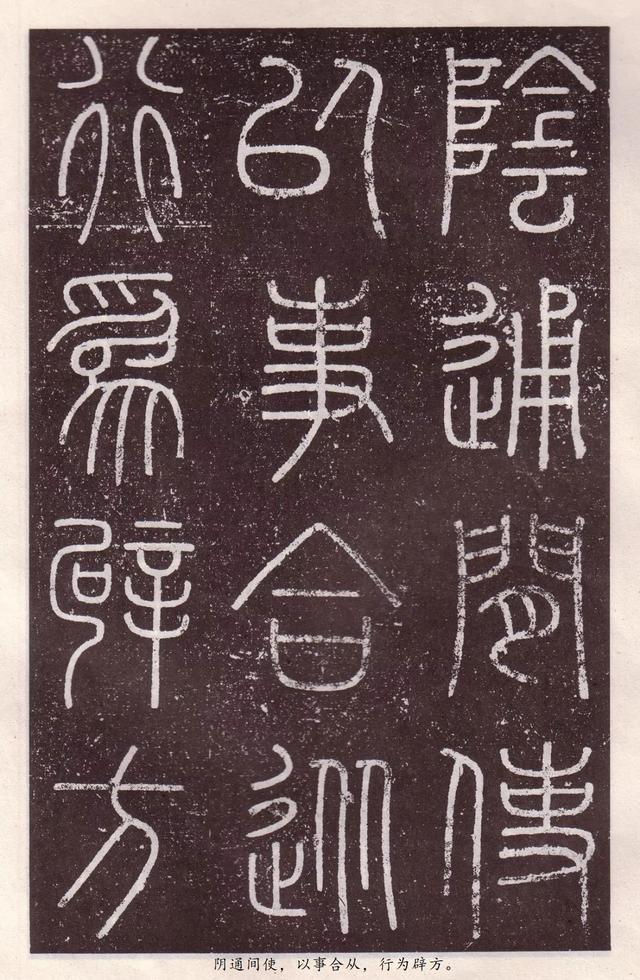 陰通閒使
以事合從
行為辟方
阴通间使，以事合从，行为辟方。